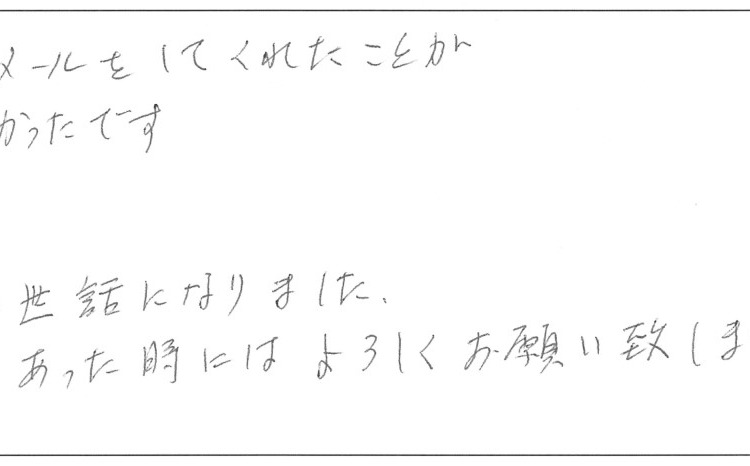 メールをしてくれたことが
かったです
世話になりました、
あった時にはよろしくお願い致しま